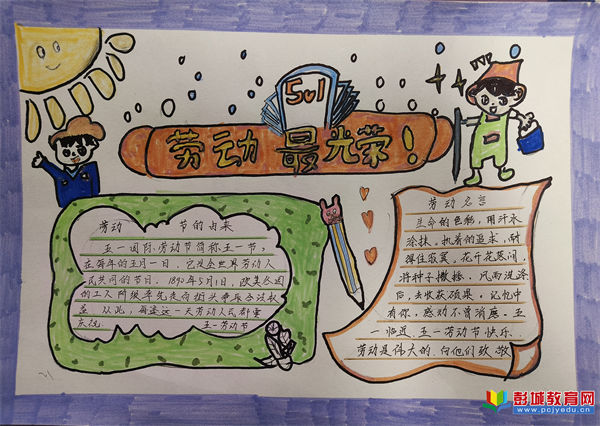 5.1
劳动最光荣!
劳动 节的由来
五一国际劳动节简称五一节,
在每年的五月一日 它是全世界劳动人
民共同的节日.1890年5月1日,欧美各国
的工人阶级率先走向街头
从此,每逢这一天劳动人民都要
庆祝 五一劳动节
劳动名言
生命的色彩,用汗水
涂抹,执着的追求,耐
得住寂寞,花开花落间,
将种子撒播,风雨洗涤
后,去收获硕果,记忆中
有你,感动不曾消磨.五
一临近,五一劳动节快乐.
劳动是伟大的,向他们致敬
彭城教育网
www.pcjyedu.cn